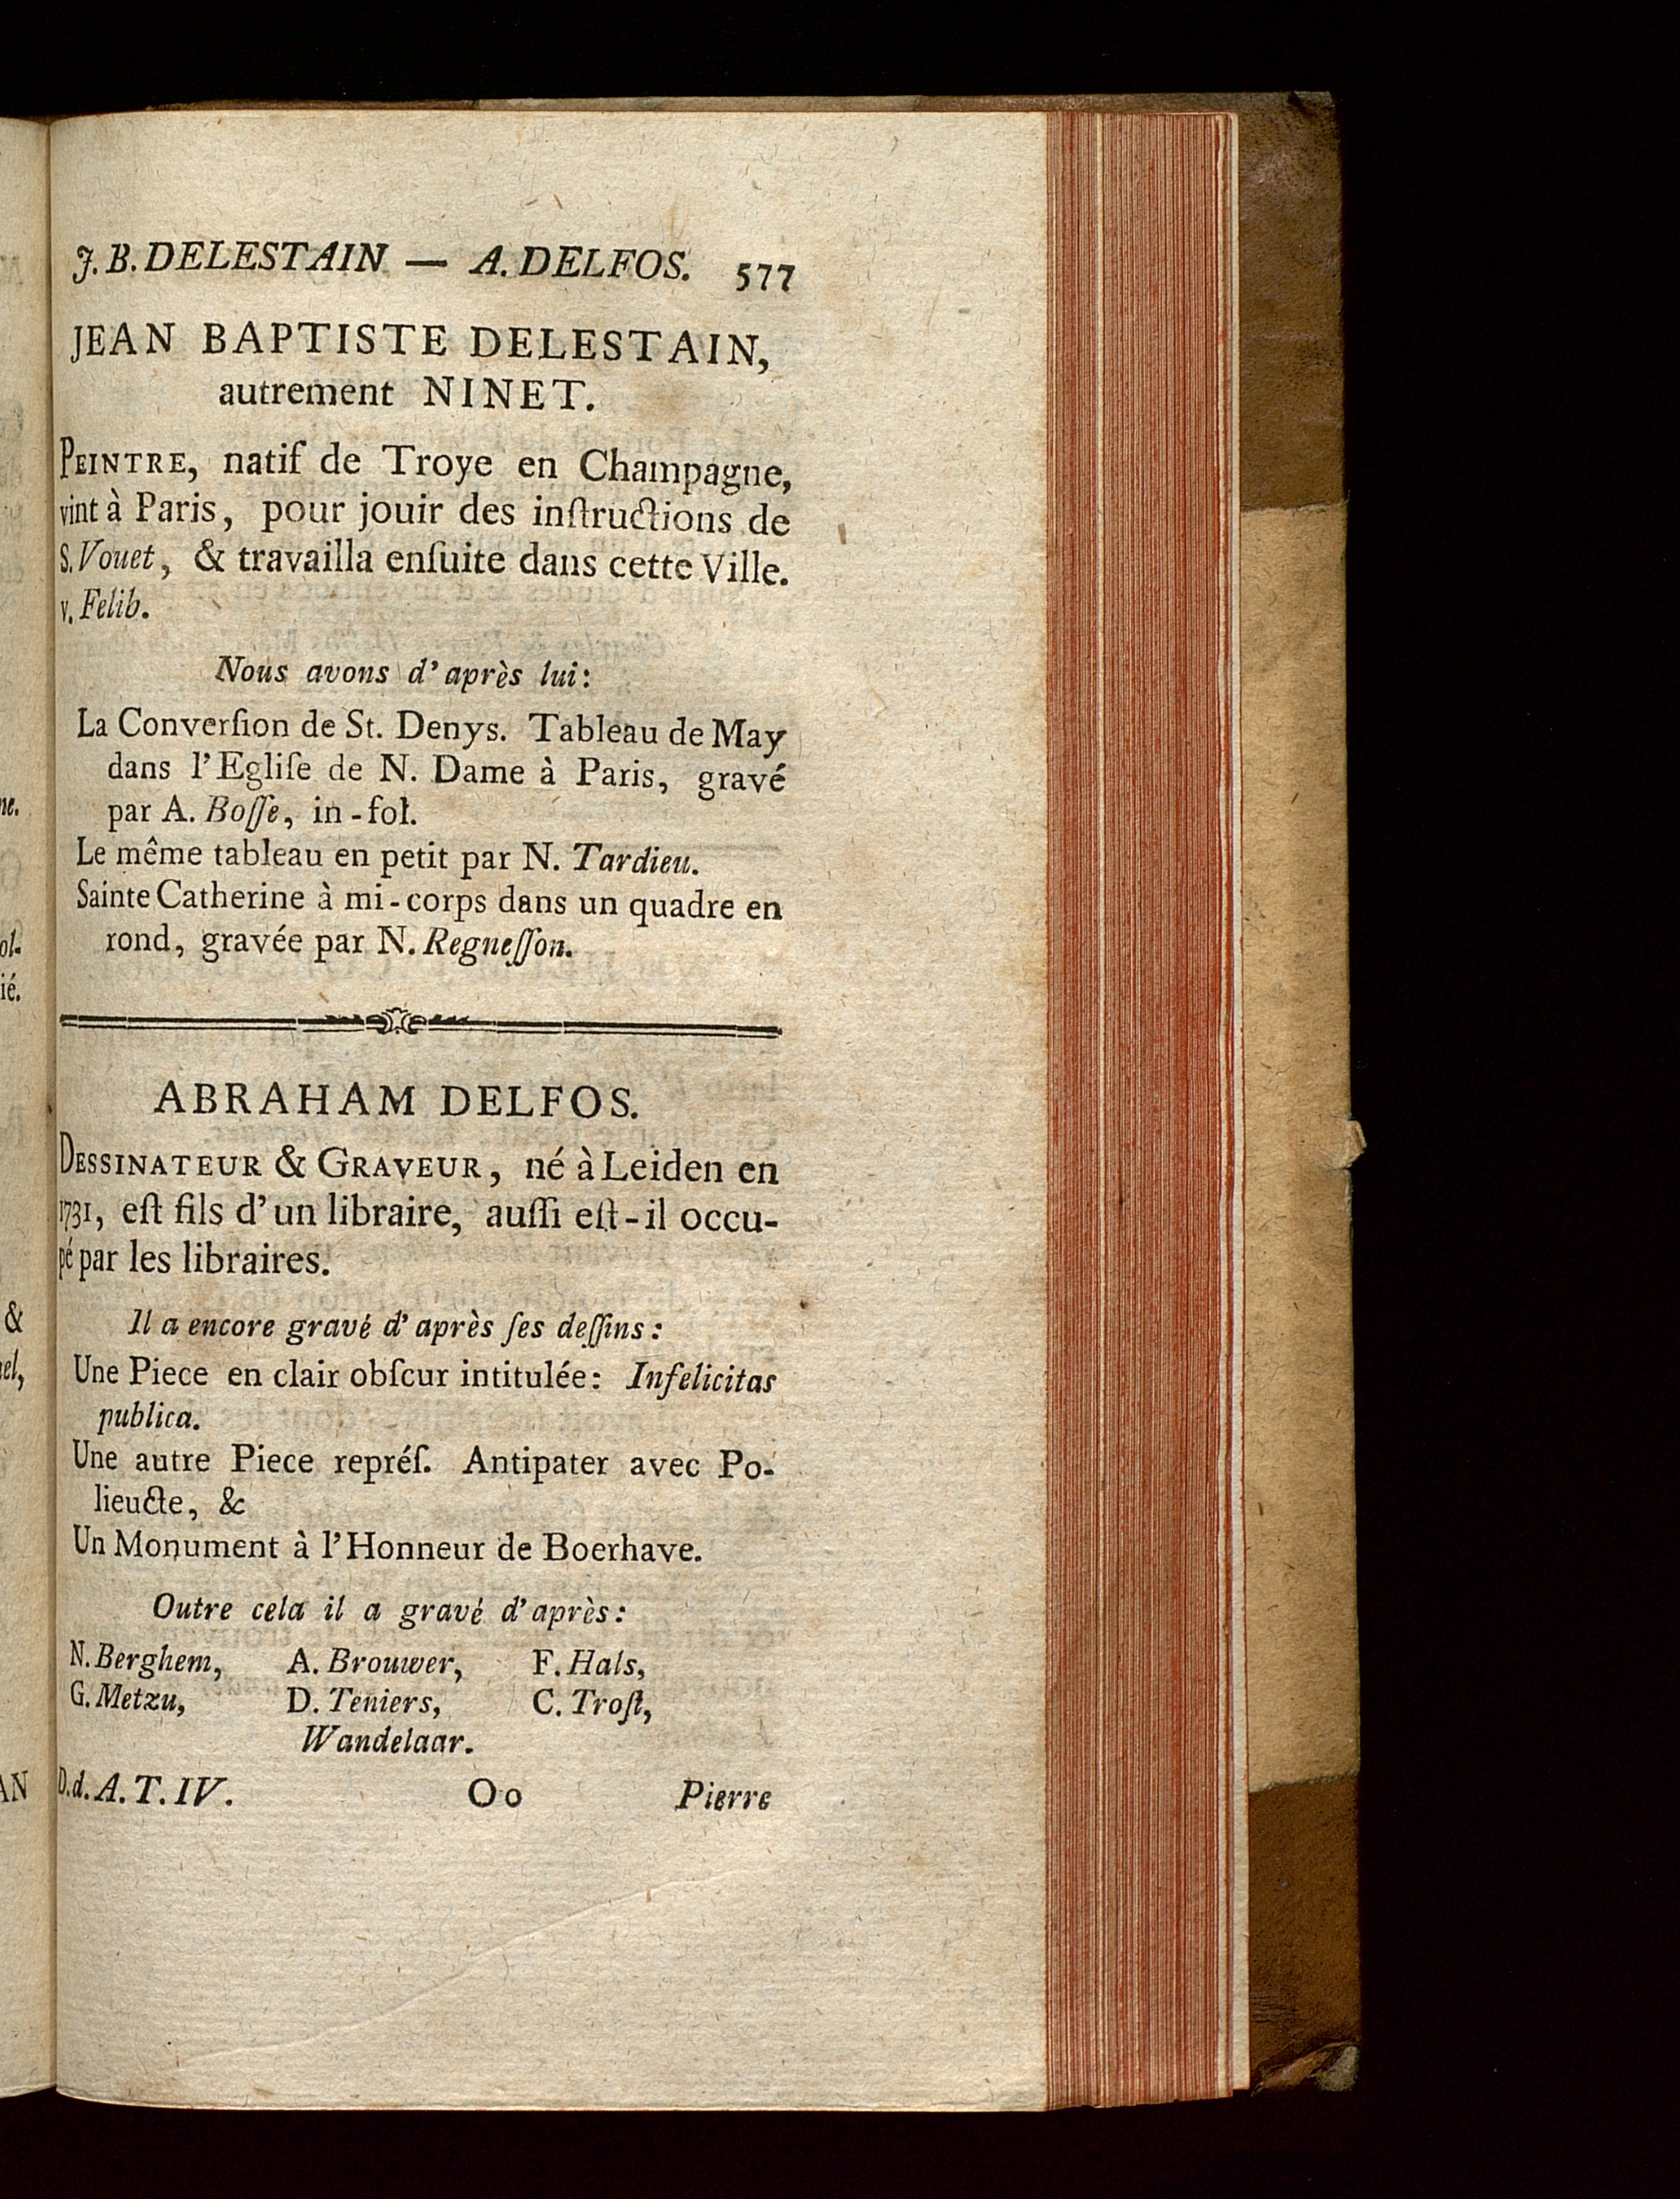 J. B. DELESTAIN — A. DELFOS. 577
JEAN BAPTISTE DELESTAIN,
autrement NINET.
PEINTRE, natif de Troye en Champagne,
vint à Paris, pour jouir des inſtructions de
S. Vouet, & travailla enſuite dans cette Ville.
v. Felib.
Nous avons d'après lui:
La Converſion de St. Denys. Tableau de May
dans l'Egliſe de N. Dame à Paris, gravé
par A. Boſſe, in-fol.
Le même tableau en petit par N. Tardieu.
Sainte Catherine à mi-corps dans un quadre en
rond, gravée par N. Regneſſon.
ABRAHAM DELFOS.
DESSINATEUR & GRAVEUR, né à Leiden en
1731, eſt fils d'un libraire, auſſi eſt-il occu-
pé par les libraires.
Il a encore gravé d'après ſes deſſins:
Une Piece en clair obſcur intitulée: Infelicitas
publica.
Une autre Piece repréſ. Antipater avec Po-
lieucte, &
Un Monument à l'Honneur de Boerhave.
Outre cela il a gravé d'après:
N. Berghem, A. Brouwer, F. Hals,
G. Metzu, D. Teniers, C. Troſt,
Wandelaar.
D. d. A. T. IV. Oo Pierre